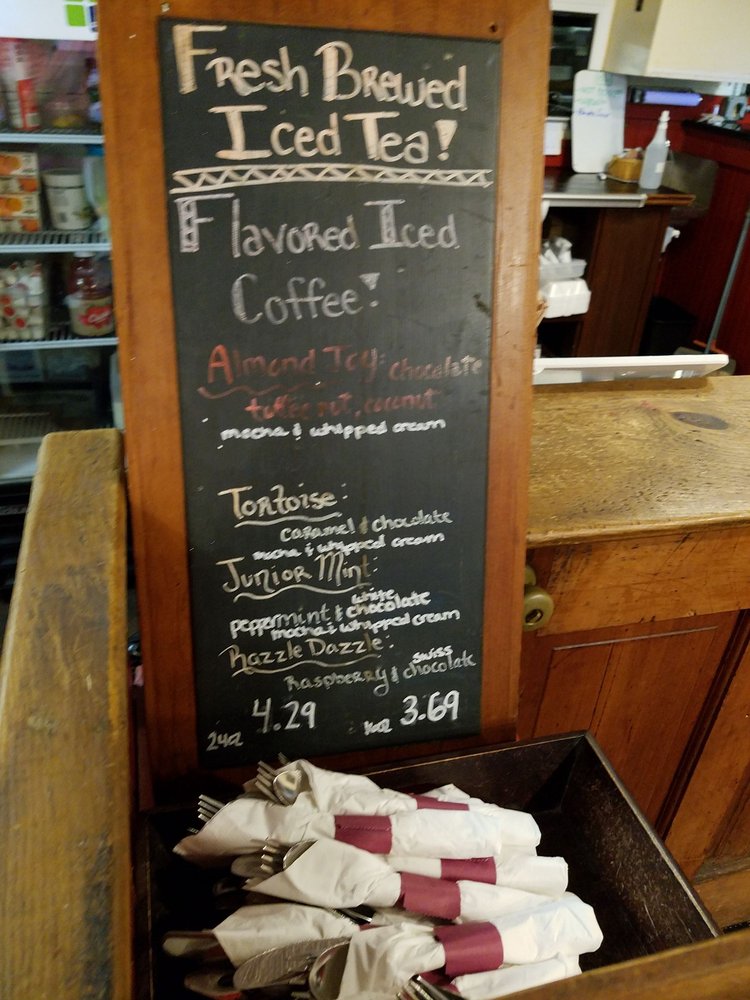 Fresh Brewed
Iced Tea!
Flavored Iced
Coffee!
Almond Joy: chocolate
toffee nut, coconut
mocha & whipped cream
Tortoise:
caramel & chocolate
mocha & whipped cream
Junior Mint:
white
peppermint & chocolate
mocha & whipped cream
Razzle Dazzle:
swiss
Raspberry & chocolate
24oz 4.29 16oz 3.69